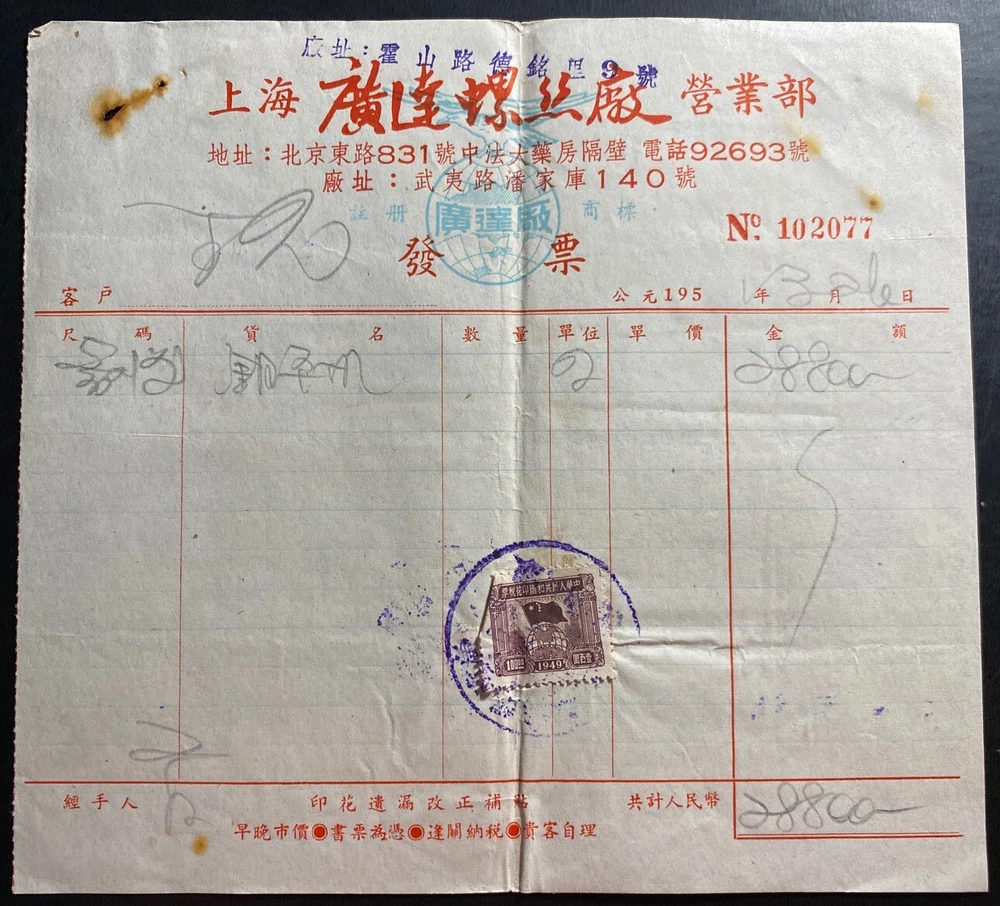 廠址：霍山路德銘里9號
上海廣達螺絲廠營業部
地址：北京東路831號中法大藥房隔壁 電話92693號
廠址：武夷路潘家庫140號
註冊 商標
廣達廠
發票
Nº. 102077
客戶 公元195 年 月 日
尺碼 貨名 數量 單位 單價 金額
28800
中華人民共和國印花稅票
100圓 1949 壹百圓
經手人 印花遺漏改正補貼 共計人民幣 28800
早晚市價●書票為憑●逢關納税●貴客自理